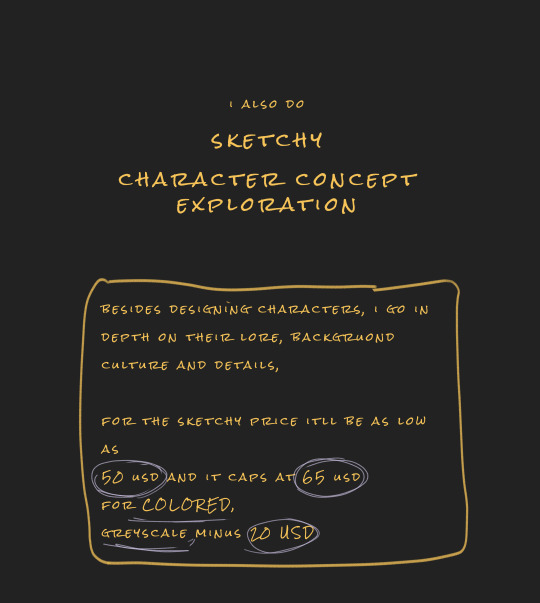 I ALSO DO
SKETCHY
CHARACTER CONCEPT
EXPLORATION
BESIDES DESIGNING CHARACTERS, I GO IN
DEPTH ON THEIR LORE, BACKGRUOND
CULTURE AND DETAILS,
FOR THE SKETCHY PRICE ITLL BE AS LOW
AS
50 USD AND IT CAPS AT 65 USD
FOR COLORED,
GREYSCALE, MINUS 20 USD